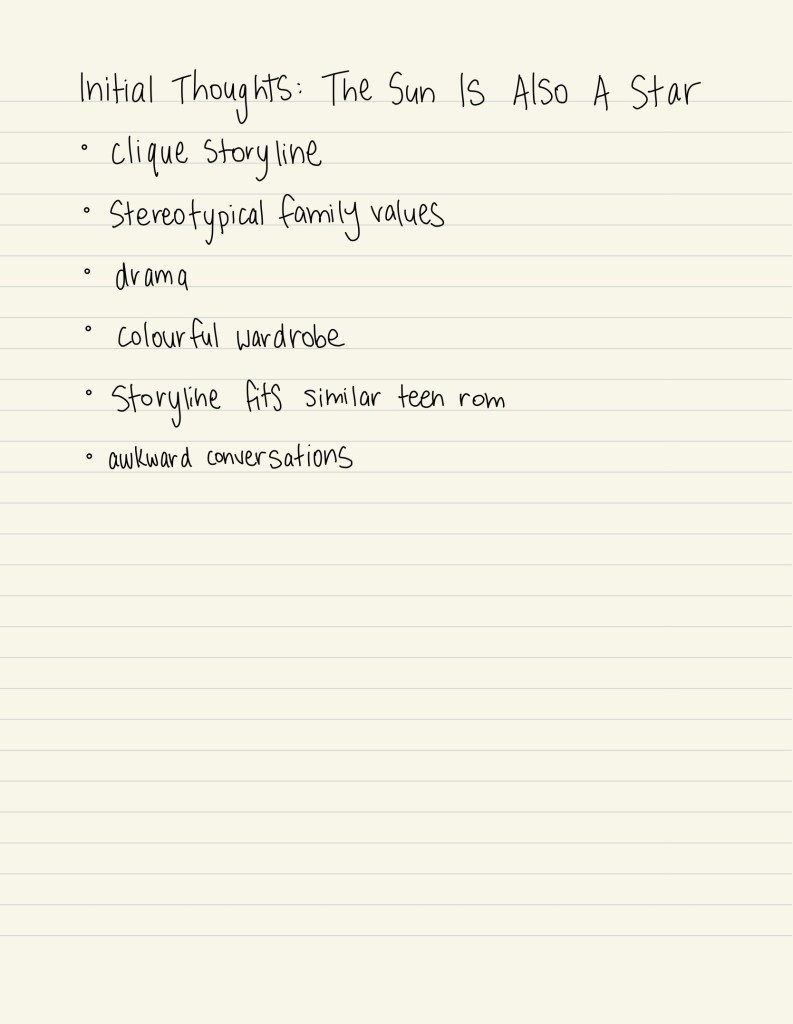 Initial Thoughts: The Sun Is Also A Star
• clique storyline
• Stereotypical family values
• drama
• colourful wardrobe
• Storyline fits similar teen rom
• awkward conversations